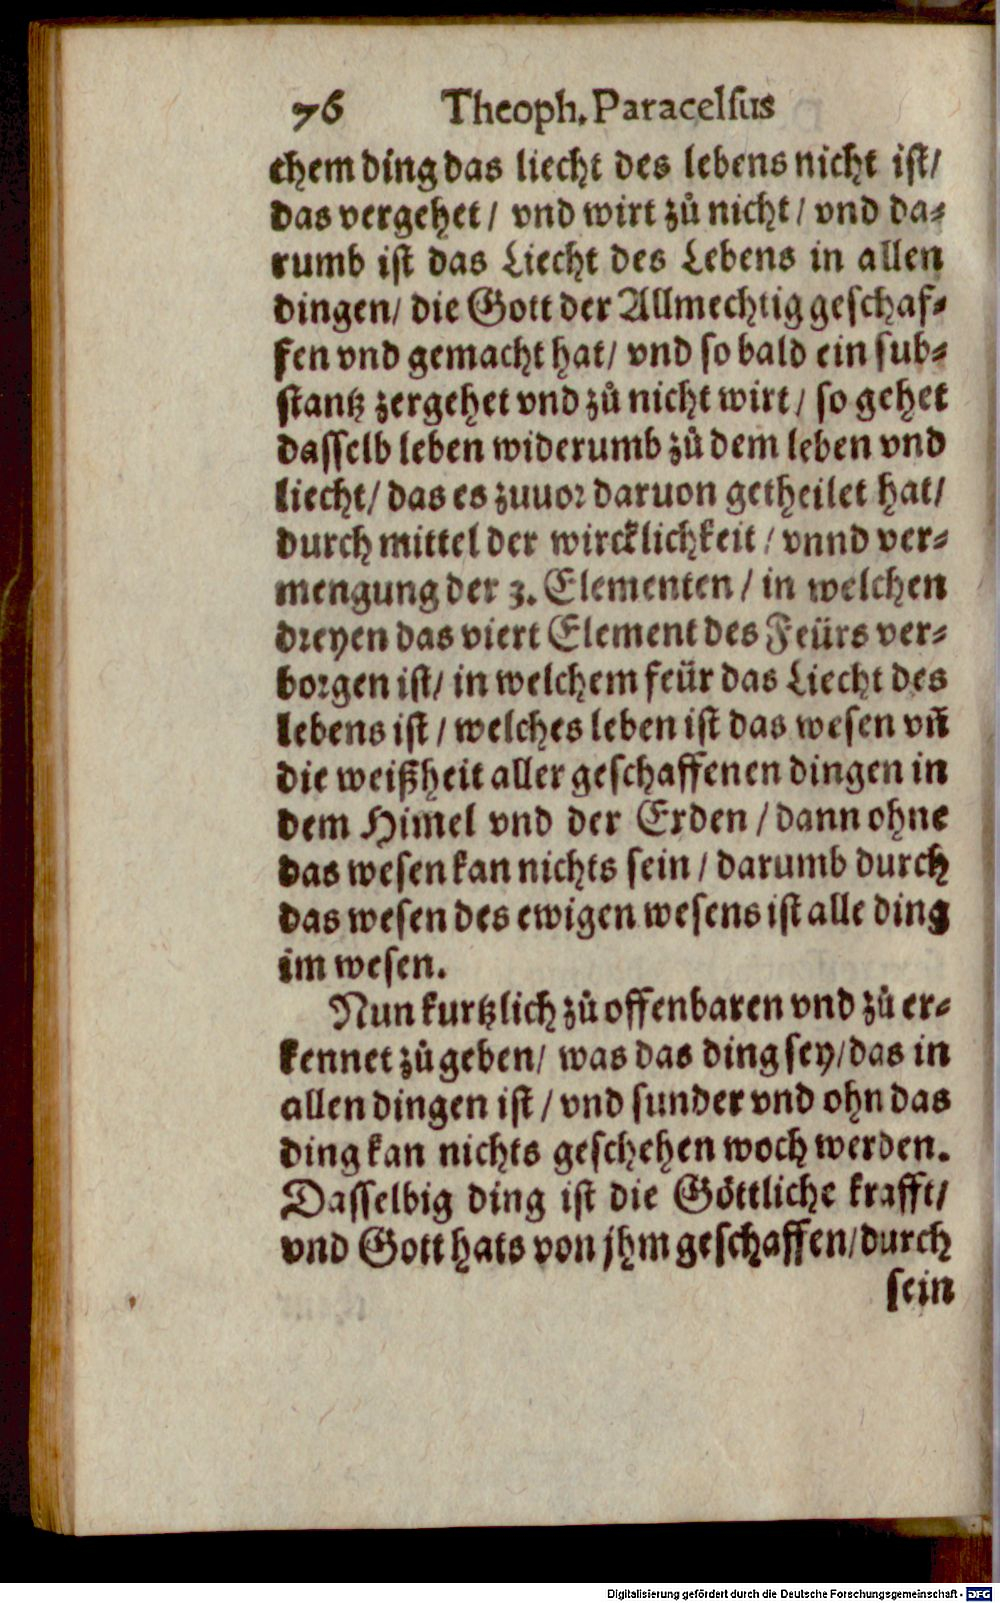 76 Theoph. Paracelsus
chem ding das liecht des lebens nicht ist/
das vergehet/ vnd wirt zů nicht/ vnd da-
rumb ist das Liecht des Lebens in allen
dingen/ die Gott der Allmechtig geschaf-
fen vnd gemacht hat/ vnd so bald ein sub-
stantz zergehet vnd zů nicht wirt/ so gehet
dasselb leben widerumb zů dem leben vnd
liecht/ das es zuuor daruon getheilet hat/
durch mittel der wircklichkeit/ vnnd ver-
mengung der 3. Elementen/ in welchen
dreyen das viert Element des Feürs ver-
borgen ist/ in welchem feür das Liecht des
lebens ist/ welches leben ist das wesen vñ
die weißheit aller geschaffenen dingen in
dem Himel vnd der Erden/ dann ohne
das wesen kan nichts sein/ darumb durch
das wesen des ewigen wesens ist alle ding
im wesen.
Nun kurtzlich zů offenbaren vnd zů er-
kennet zů geben/ was das ding sey/ das in
allen dingen ist/ vnd sunder vnd ohn das
ding kan nichts geschehen woch werden.
Dasselbig ding ist die Göttliche krafft/
vnd Gott hats von jhm geschaffen/ durch
sein
Digitalisierung gefördert durch die Deutsche Forschungsgemeinschaft - DFG